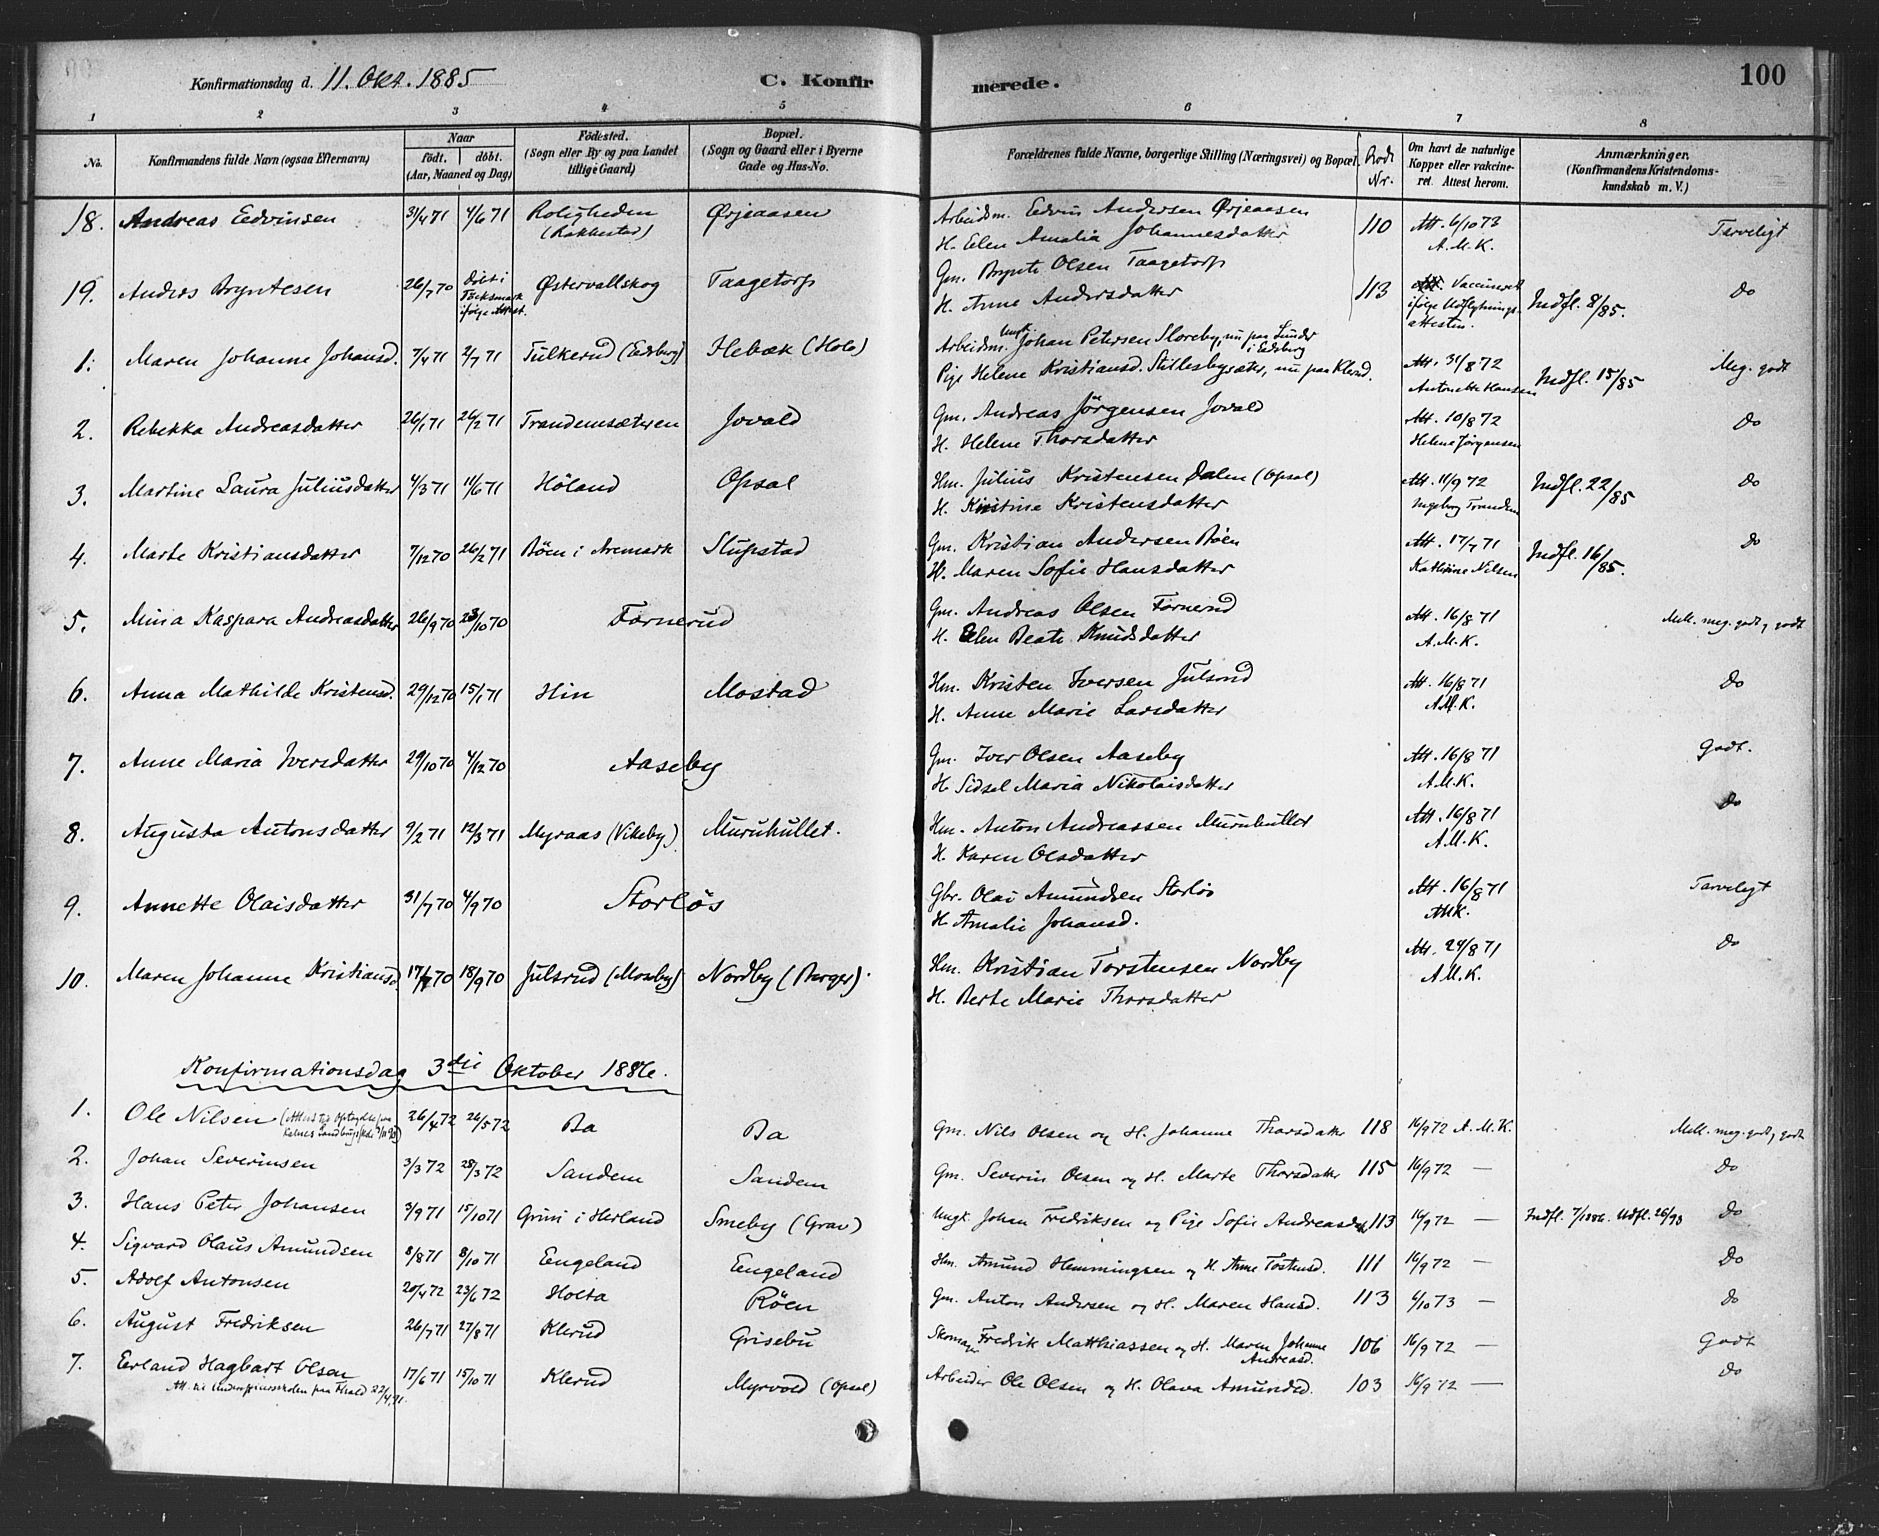 Konfirmationsdag d. 11. Okt. 1885 C. Konfirmerede. 100
1 2 3 4 5 6 7 8
No. Konfirmandens fulde Navn (ogsaa Efternavn) Naar født. døbt. (Aar, Maaned og Dag) Födested. (Sogn eller By og paa Landet tillige Gaard) Bopæl. (Sogn og Gaard eller i Byerne Gade og Hus-No.) Forældrenes fulde Navne, borgerlige Stilling (Næringsvei) og Bopæl. Rode Nr. Om havt de naturlige Kopper eller vakcineret. Attest herom. Anmærkninger. (Konfirmandens Kristendomskundskab m. V.)
18. Andreas Edvinsen 31/4 71 4/6 71 Roligheden (Rakkestad) Ørjeaasen Arbeidsm. Edvin Andersen Ørjeaasen 110 Att. 6/10 73 Tarveligt
H. Elen Amalia Johannesdatter A.M.K.
19. Anders Bryntesen 26/7 70 Døbt i Töcksmark ifølge Attest. Østervallskog Taagetorp Gm. Brynte Olsen Taagetorp 113 Vaccineret ifølge Udflytningsattesten. Indfl. 8/85. Do
H. Anne Andersdatter
1. Maren Johanne Johansd. 7/4 71 2/7 71 Tulkerud (Eidsberg) Hebæk (Holo) Arbeidsm. Ungk. Johan Petersen Sloreby, nu paa Lunder i Eidsberg Att. 31/8 72 Indfl. 15/85 Meg. godt
Pige Helene Kristiansd. Stillesbysæter, nu paa Klerud. Antonette Hansen
2. Rebekka Andreasdatter 26/1 71 26/2 71 Trandemsæteren Jovald Gm. Andreas Jørgensen Jovald Att. 10/8 72 Do
H. Helene Thorsdatter Helene Jørgensen
3. Martine Laura Juliusdatter 4/3 71 11/6 71 Høland Opsal Hm. Julius Kristensen Dalen (Opsal) Att. 11/9 72 Indfl. 22/85 Do
H. Kristine Kristensdatter Ingeborg Trandem
4. Marte Kristiansdatter 7/12 70 26/2 71 Bøen i Aremark Slupstad Gm. Kristian Andersen Bøen Att. 17/7 71 Indfl. 16/85. Do
H. Maren Sofie Hansdatter Kathrine Nilsen
5. Mina Kaspara Andreasdatter 26/9 70 23/10 70 Fornerud Gm. Andreas Olsen Fornerud Att. 16/8 71 Mell. meg. godt og godt
H. Elen Beate Knudsdatter A.M.K.
6. Anna Mathilde Kristensd. 29/12 70 15/1 71 Hin Mostad Hm. Kristen Iversen Julsrud Att. 16/8 71 Do
H. Anne Marie Larsdatter A.M.K.
7. Anne Maria Iversdatter 29/10 70 4/12 70 Aaseby Gm. Iver Olsen Aaseby Att. 16/8 71 Godt.
H. Sidsel Maria Nikolaisdatter A.M.K.
8. Augusta Antonsdatter 9/2 71 12/3 71 Myraas (Vikeby) Muruhullet. Hm. Anton Andreassen Muruhullet Att. 16/8 71 Do
H. Karen Olsdatter A.M.K.
9. Annette Olaisdatter 31/7 70 4/9 70 Storløs Gbr. Olai Amundsen Storløs Att. 16/8 71 Tarveligt
H. Amalie Johansd. AMK.
10. Maren Johanne Kristiansd. 17/7 70 18/9 70 Julsrud (Moseby) Nordby (Berger). Hm. Kristian Torstensen Nordby Att. 29/8 71 Do
H. Berte Marie Thorsdatter A.M.K.
Konfirmationsdag 3die Oktober 1886.
1. Ole Nilsen 26/4 72 26/5 72 Ba Ba Gm. Nils Olsen og H. Johanne Thorsdatter 118 16/9 72 A.M.K. Mell. meg. godt og godt
2. Johan Severinsen 3/3 72 28/3 72 Sandem Sandem Gm. Severin Olsen og H. Marte Thorsdatter 115 16/9 72 — Do
3. Hans Peter Johansen 3/9 71 15/10 71 Gruni i Herland Smeby (Grav) Ungk. Johan Fredriksen og Pige Sofie Andreasdtr 113 16/9 72 — Indfl. 7/1886. Udfl. 26/93 Do
4. Sigvard Olaus Amundsen 8/8 71 8/10 71 Eengeland Eengeland Hm. Amund Hemmingsen og H. Anne Tostensd. 111 16/9 72 — Do
5. Adolf Antonsen 20/4 72 23/6 72 Holta Røen Gm. Anton Andersen og H. Maren Hansd. 113 6/10 73 — Do
6. August Fredriksen 26/7 71 27/8 71 Klerud Grisebu Skomager Fredrik Matthiassen og H. Maren Johanne Andreasd. 106 16/9 72 — Godt
7. Erland Hagbart Olsen 17/6 71 15/10 71 Klerud Myrvold (Opsal) Arbeider Ole Olsen og H. Olava Amundsd. 103 16/9 72 — Do
Att. til Underofficersskolen paa 22/4 91.